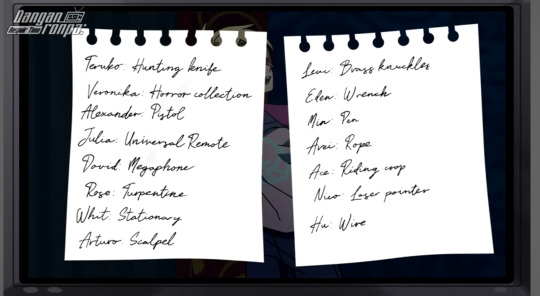 Dangan
ronpa:
Teruko: Hunting knife
Veronika: Horror collection
Alexander: Pistol
Julia: Universal Remote
David: Megaphone
Rose: Turpentine
Whit: Stationary
Arturo: Scalpel
Levi: Brass knuckles
Eden: Wrench
Min: Pen
Arei: Rope
Ace: Riding crop
Nico: Laser pointer
Hu: Wire